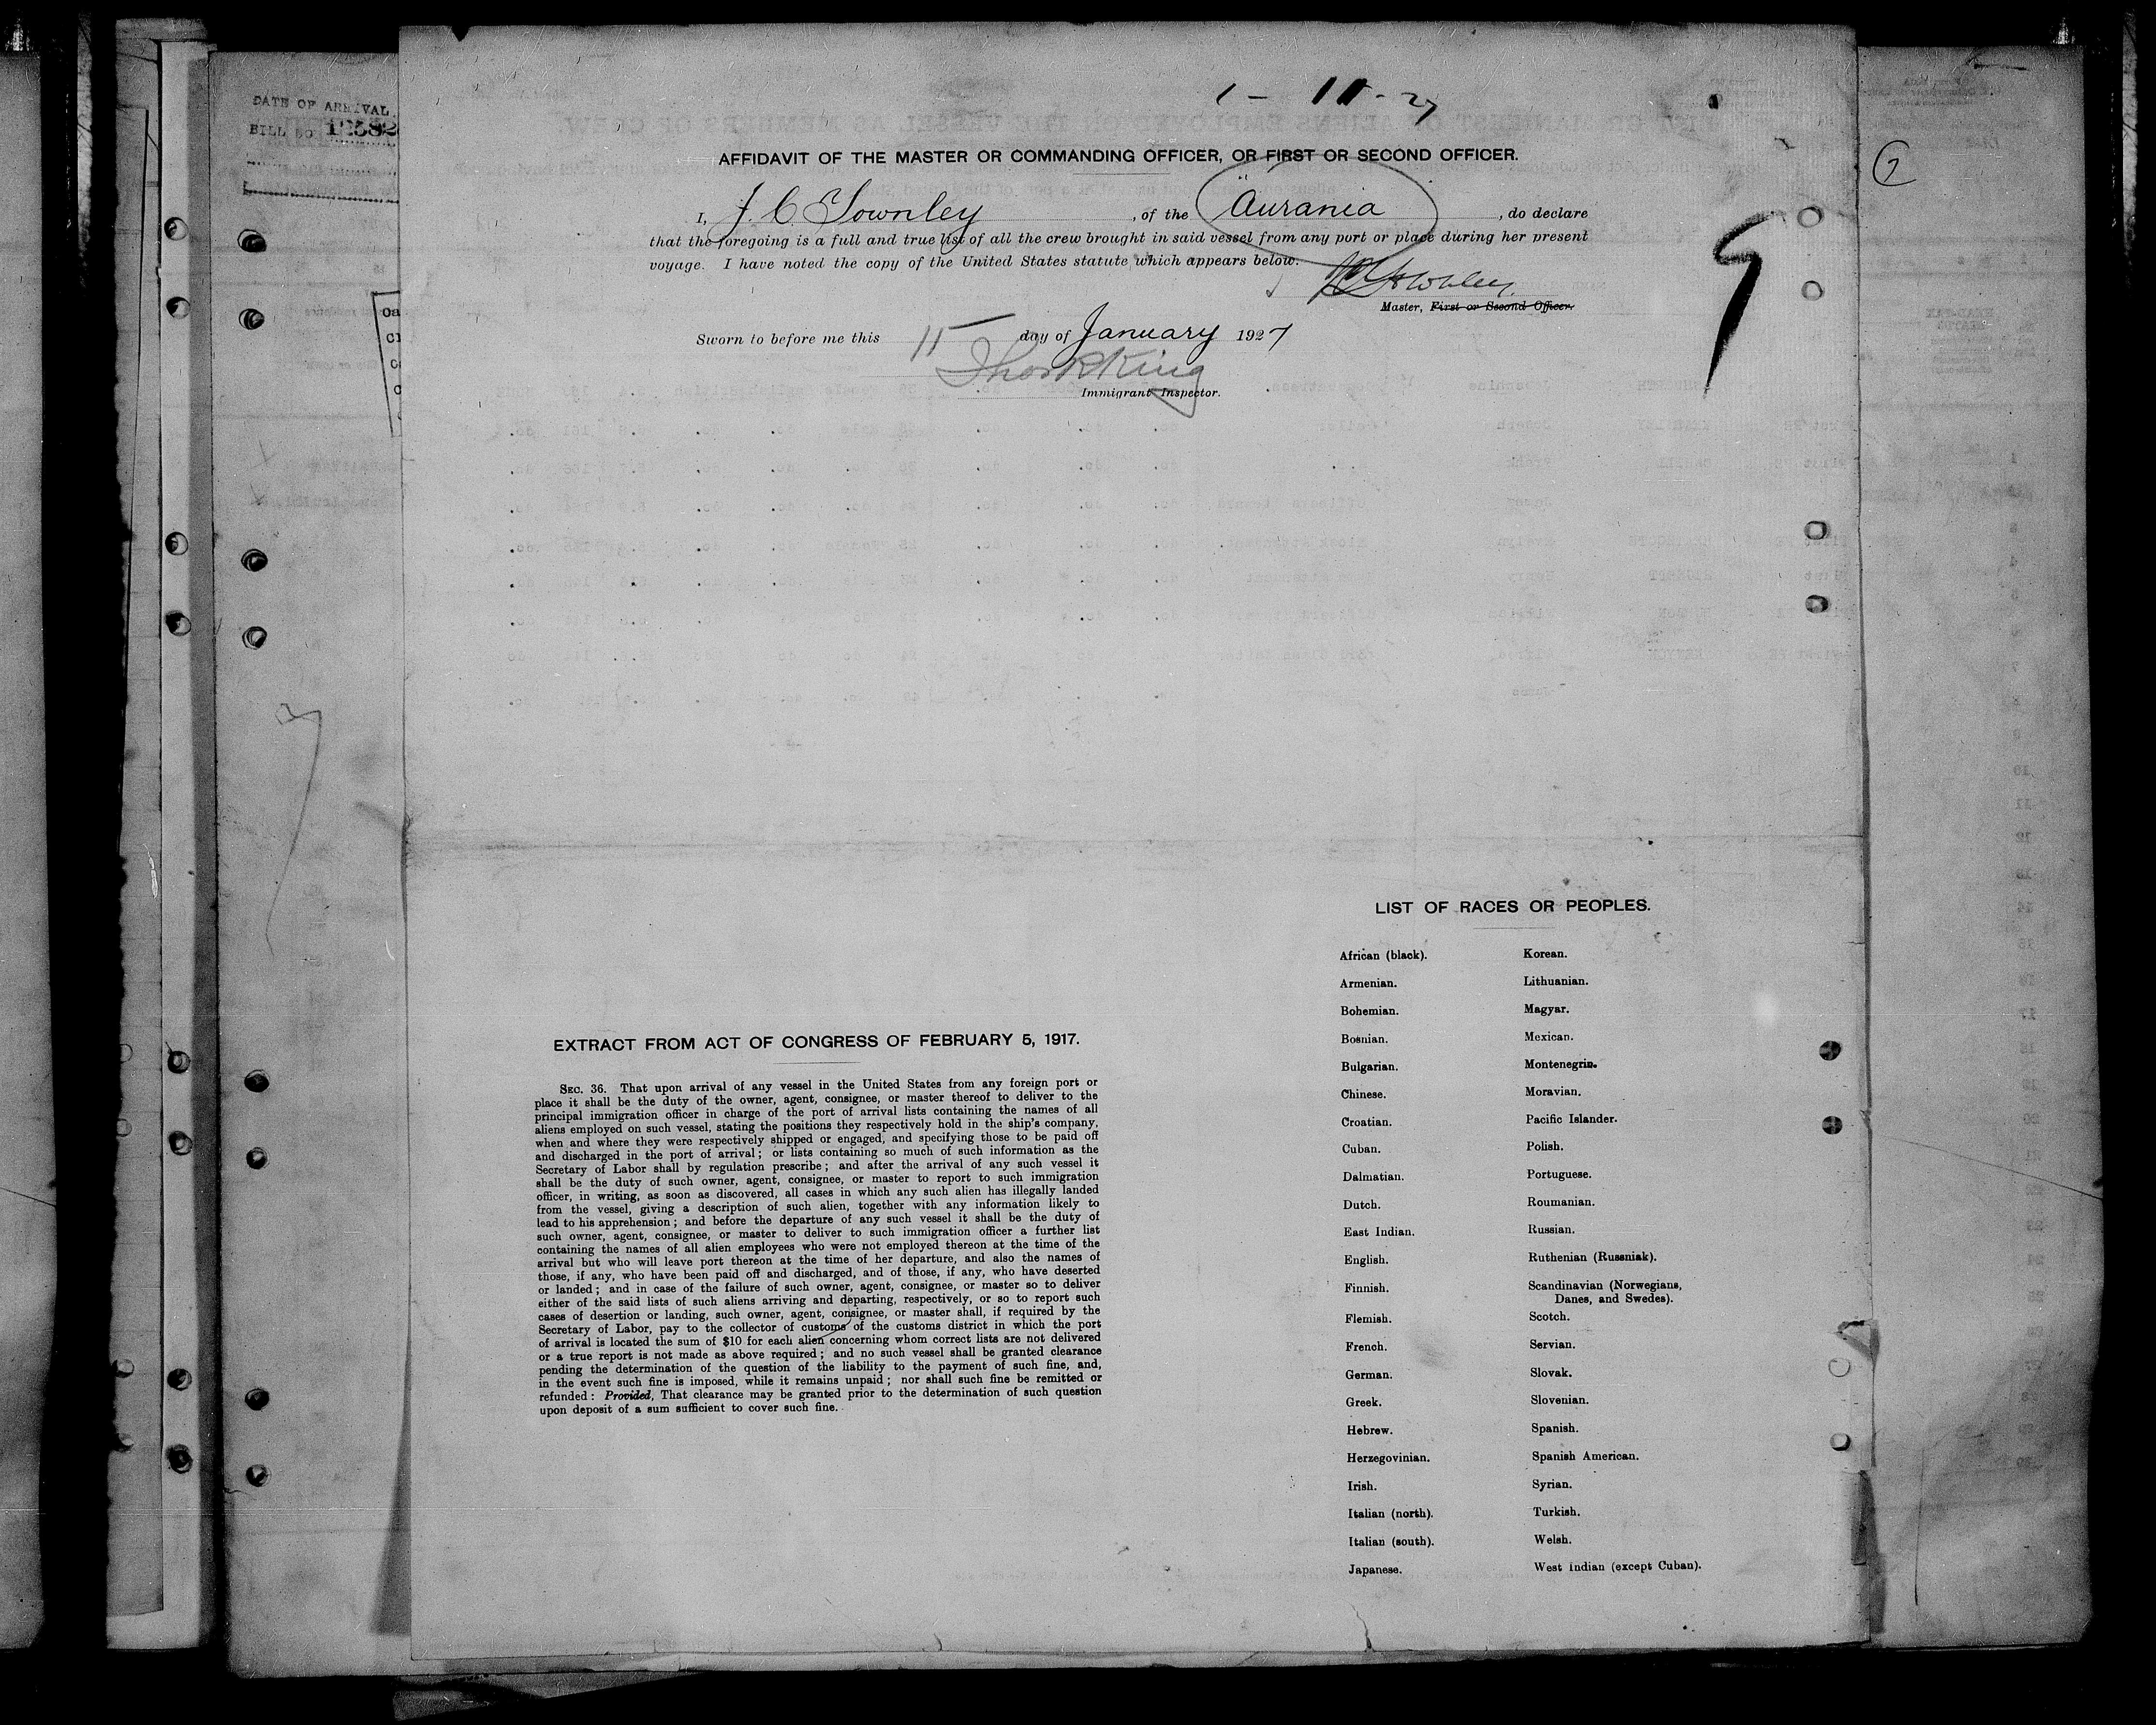 1 - 11 - 27
DATE OF ARRIVAL
BILL NO. 12582
AFFIDAVIT OF THE MASTER OR COMMANDING OFFICER, OR FIRST OR SECOND OFFICER.
I, J. C. Townley, of the "Aurania, do declare
that the foregoing is a full and true list of all the crew brought in said vessel from any port or place during her present
voyage. I have noted the copy of the United States statute which appears below.
J C Townley
Master, First or Second Officer.
Sworn to before me this 11 day of January 1927
King
Immigrant Inspector.
LIST OF RACES OR PEOPLES.
African (black).
Armenian.
Bohemian.
Bosnian.
Bulgarian.
Chinese.
Croatian.
Cuban.
Dalmatian.
Dutch.
East Indian.
English.
Finnish.
Flemish.
French.
German.
Greek.
Hebrew.
Herzegovinian.
Irish.
Italian (north).
Italian (south).
Japanese.
Korean.
Lithuanian.
Magyar.
Mexican.
Montenegrin.
Moravian.
Pacific Islander.
Polish.
Portuguese.
Roumanian.
Russian.
Ruthenian (Russniak).
Scandinavian (Norwegians,
Danes, and Swedes).
Scotch.
Servian.
Slovak.
Slovenian.
Spanish.
Spanish American.
Syrian.
Turkish.
Welsh.
West Indian (except Cuban).
EXTRACT FROM ACT OF CONGRESS OF FEBRUARY 5, 1917.
SEC. 36. That upon arrival of any vessel in the United States from any foreign port or
place it shall be the duty of the owner, agent, consignee, or master thereof to deliver to the
principal immigration officer in charge of the port of arrival lists containing the names of all
aliens employed on such vessel, stating the positions they respectively hold in the ship's company,
when and where they were respectively shipped or engaged, and specifying those to be paid off
and discharged in the port of arrival; or lists containing so much of such information as the
Secretary of Labor shall by regulation prescribe; and after the arrival of any such vessel it
shall be the duty of such owner, agent, consignee, or master to report to such immigration
officer, in writing, as soon as discovered, all cases in which any such alien has illegally landed
from the vessel, giving a description of such alien, together with any information likely to
lead to his apprehension; and before the departure of any such vessel it shall be the duty of
such owner, agent, consignee, or master to deliver to such immigration officer a further list
containing the names of all alien employees who were not employed thereon at the time of the
arrival but who will leave port thereon at the time of her departure, and also the names of
those, if any, who have been paid off and discharged, and of those, if any, who have deserted
or landed; and in case of the failure of such owner, agent, consignee, or master so to deliver
either of the said lists of such aliens arriving and departing, respectively, or so to report such
cases of desertion or landing, such owner, agent, consignee, or master shall, if required by the
Secretary of Labor, pay to the collector of customs of the customs district in which the port
of arrival is located the sum of $10 for each alien concerning whom correct lists are not delivered
or a true report is not made as above required; and no such vessel shall be granted clearance
pending the determination of the question of the liability to the payment of such fine, and,
in the event such fine is imposed, while it remains unpaid; nor shall such fine be remitted or
refunded: Provided, That clearance may be granted prior to the determination of such question
upon deposit of a sum sufficient to cover such fine.